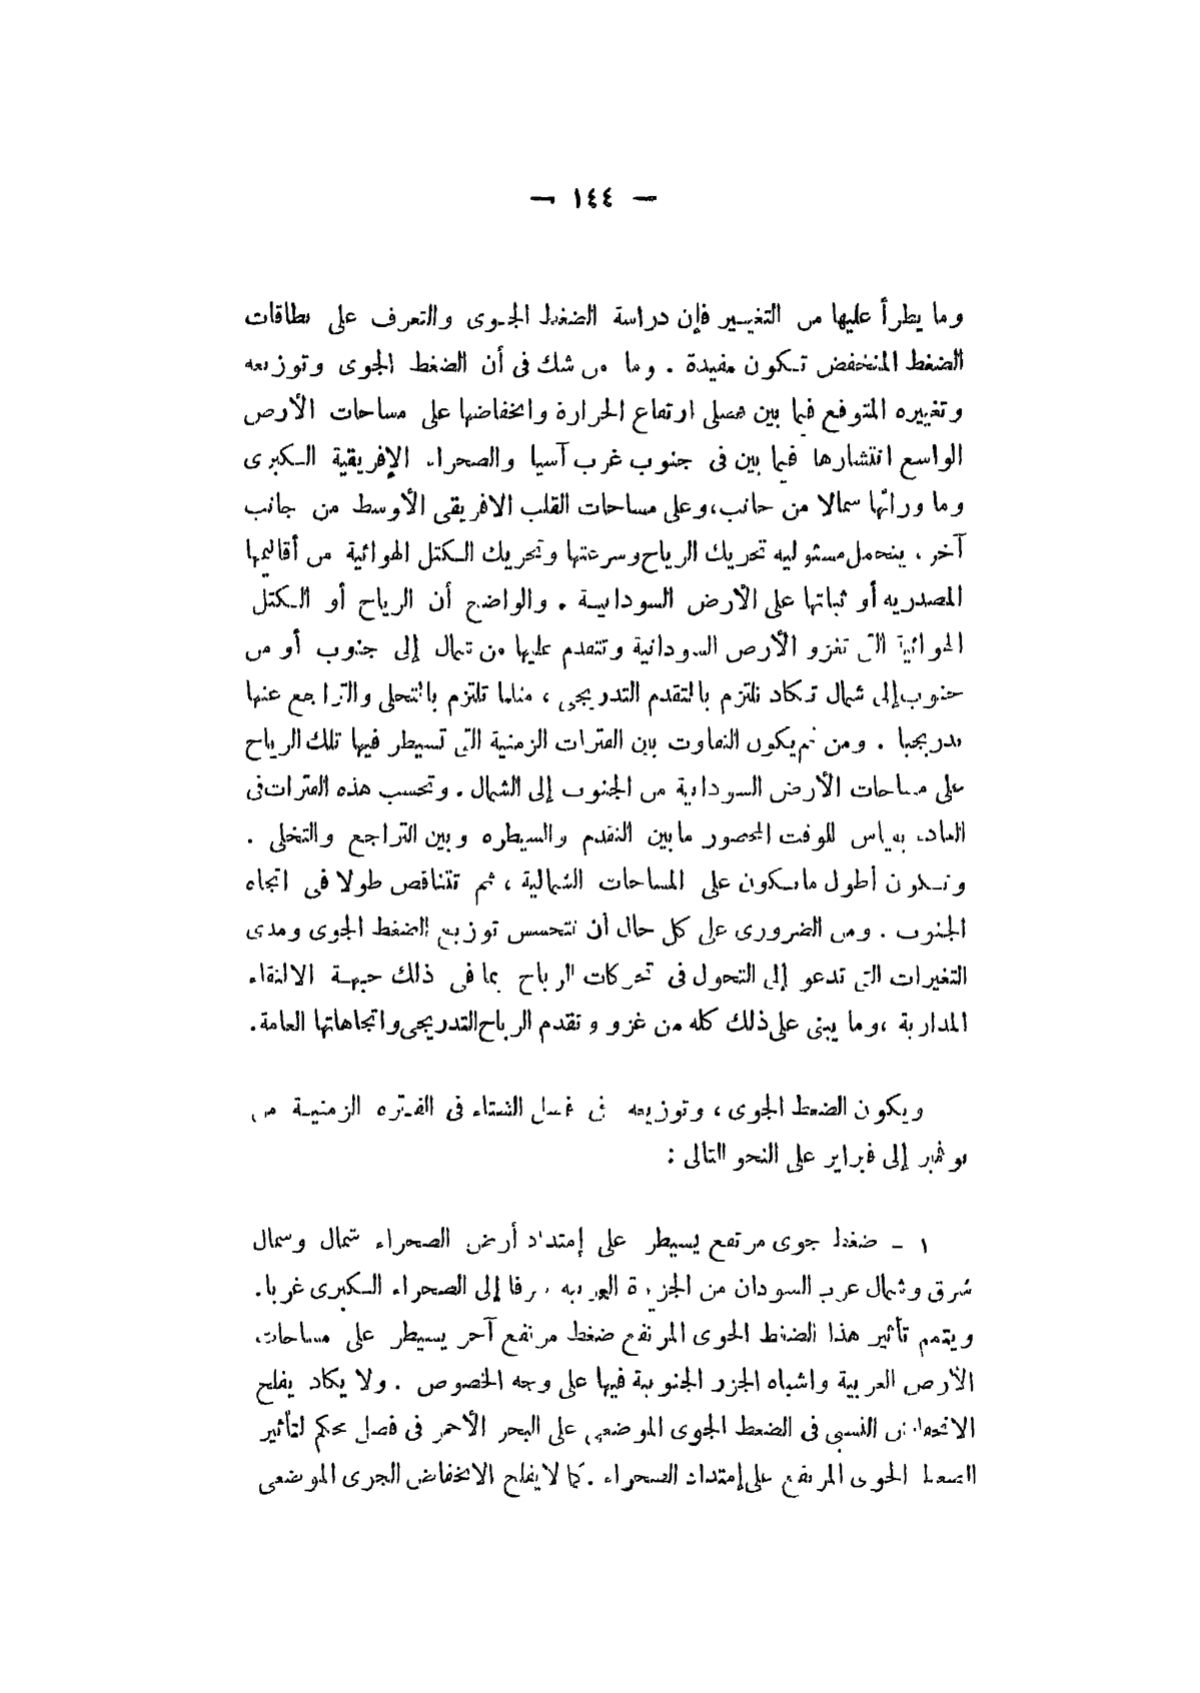 — ١٤٤ —
وما يطرأ عليها من التغيير فإن دراسة الضغط الجوى والتعرف على نطاقات
الضغط المنخفض تكون مفيدة . وما من شك فى أن الضغط الجوى وتوزيعه
وتغييره المتوقع فيما بين فصلى ارتفاع الحرارة وانخفاضها على مساحات الأرض
الواسع انتشارها فيما بين فى جنوب غرب آسيا والصحراء الإفريقية الكبرى
وما ورائها شمالا من جانب، وعلى مساحات القلب الافريقى الأوسط من جانب
آخر ، يتحمل مسئوليه تحريك الرياح وسرعتها وتحريك الكتل الهوائية من أقاليمها
المصدريه أو ثباتها على الأرض السودانية . والواضح أن الرياح أو الكتل
الهوائية التى تغزو الأرض السودانية وتتقدم عليها من شمال إلى جنوب أو من
جنوب إلى شمال تكاد تلتزم بالتقدم التدريجى ، مثلما تلتزم بالتخلى والتراجع عنها
تدريجيا . ومن ثم يكون التفاوت بين الفترات الزمنية التى تسيطر فيها تلك الرياح
على مساحات الأرض السودانية من الجنوب إلى الشمال . وتحسب هذه الفترات فى
العادة بقياس للوقت المحصور ما بين التقدم والسيطره وبين التراجع والتخلى .
وتكون أطول ما تكون على المساحات الشمالية ، ثم تتناقص طولا فى اتجاه
الجنوب . ومن الضرورى على كل حال أن نتحسس توزيع الضغط الجوى ومدى
التغيرات التى تدعو إلى التحول فى تحركات الرياح بما فى ذلك جبهة الالتقاء
المدارية ، وما يبنى على ذلك كله من غزو وتقدم الرياح التدريجى واتجاهاتها العامة.
ويكون الضغط الجوى ، وتوزيعه فى فصل الشتاء فى الفتره الزمنية من
نوفمبر إلى فبراير على النحو التالى :
١ - ضغط جوى مرتفع يسيطر على إمتداد أرض الصحراء شمال وشمال
شرق وشمال غرب السودان من الجزيرة العربيه شرقا إلى الصحراء الكبرى غربا.
ويتمم تأثير هذا الضغط الجوى المرتفع ضغط مرتفع آخر يسيطر على مساحات
الأرض العربية واشباه الجزر الجنوبية فيها على وجه الخصوص . ولا يكاد يفلح
الانخفاض النسبى فى الضغط الجوى الموضعى على البحر الأحمر فى فصل محكم لتأثير
الضغط الجوى المرتفع على إمتداد الصحراء . كما لا يفلح الانخفاض الجوى الموضعى